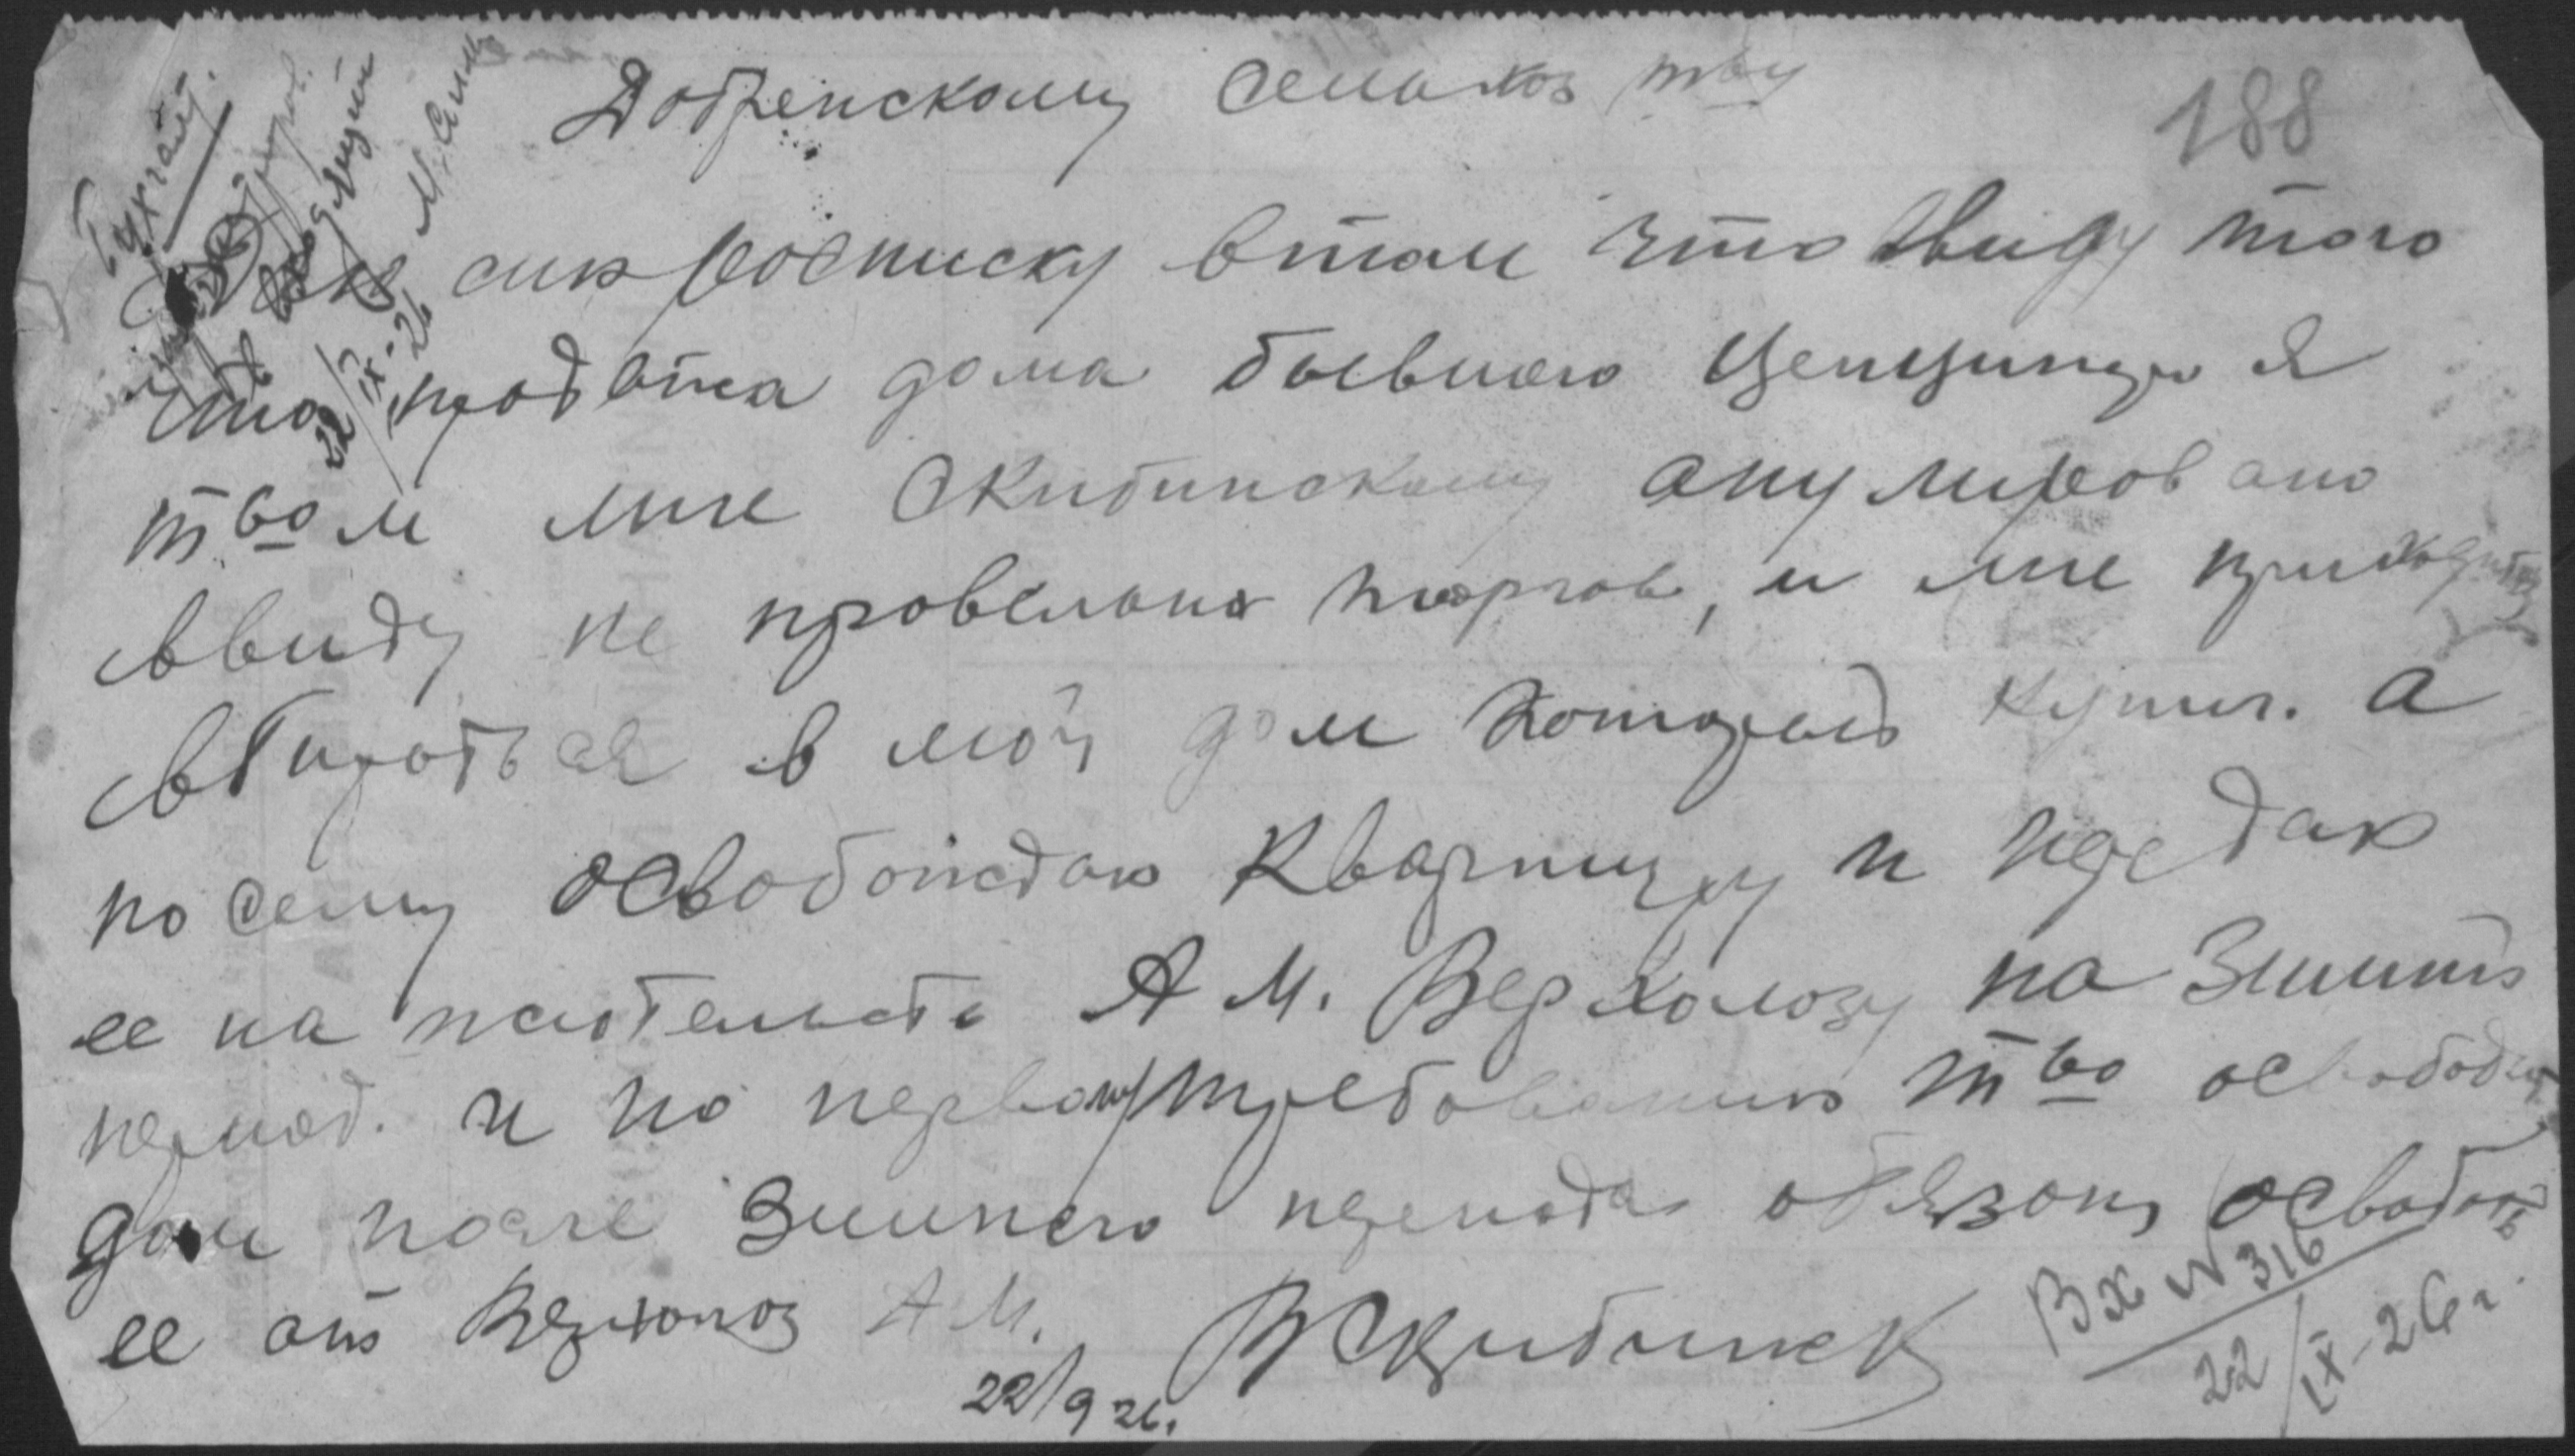 188
Бухгалт.
22/IX-26
Добренскому сельхоз тву
Дан сию росписку втом что ввиду того
что продажа дома бывшего я
твом мне Скибинскому анулировано
ввиду не проведено торгов, и мне приходится
вбиратся в мой дом который купил. а
по сему освобождаю квартиру и передаю
ее на жительство А М. Верхолозу на Зимний
период. и по первому требованию тво освободить
дом после Зимнего периода обязан освободить
ее от Верхолоз А М.
В Скибинск
22/9 26.
Вх № 316
22/IX-26 г.